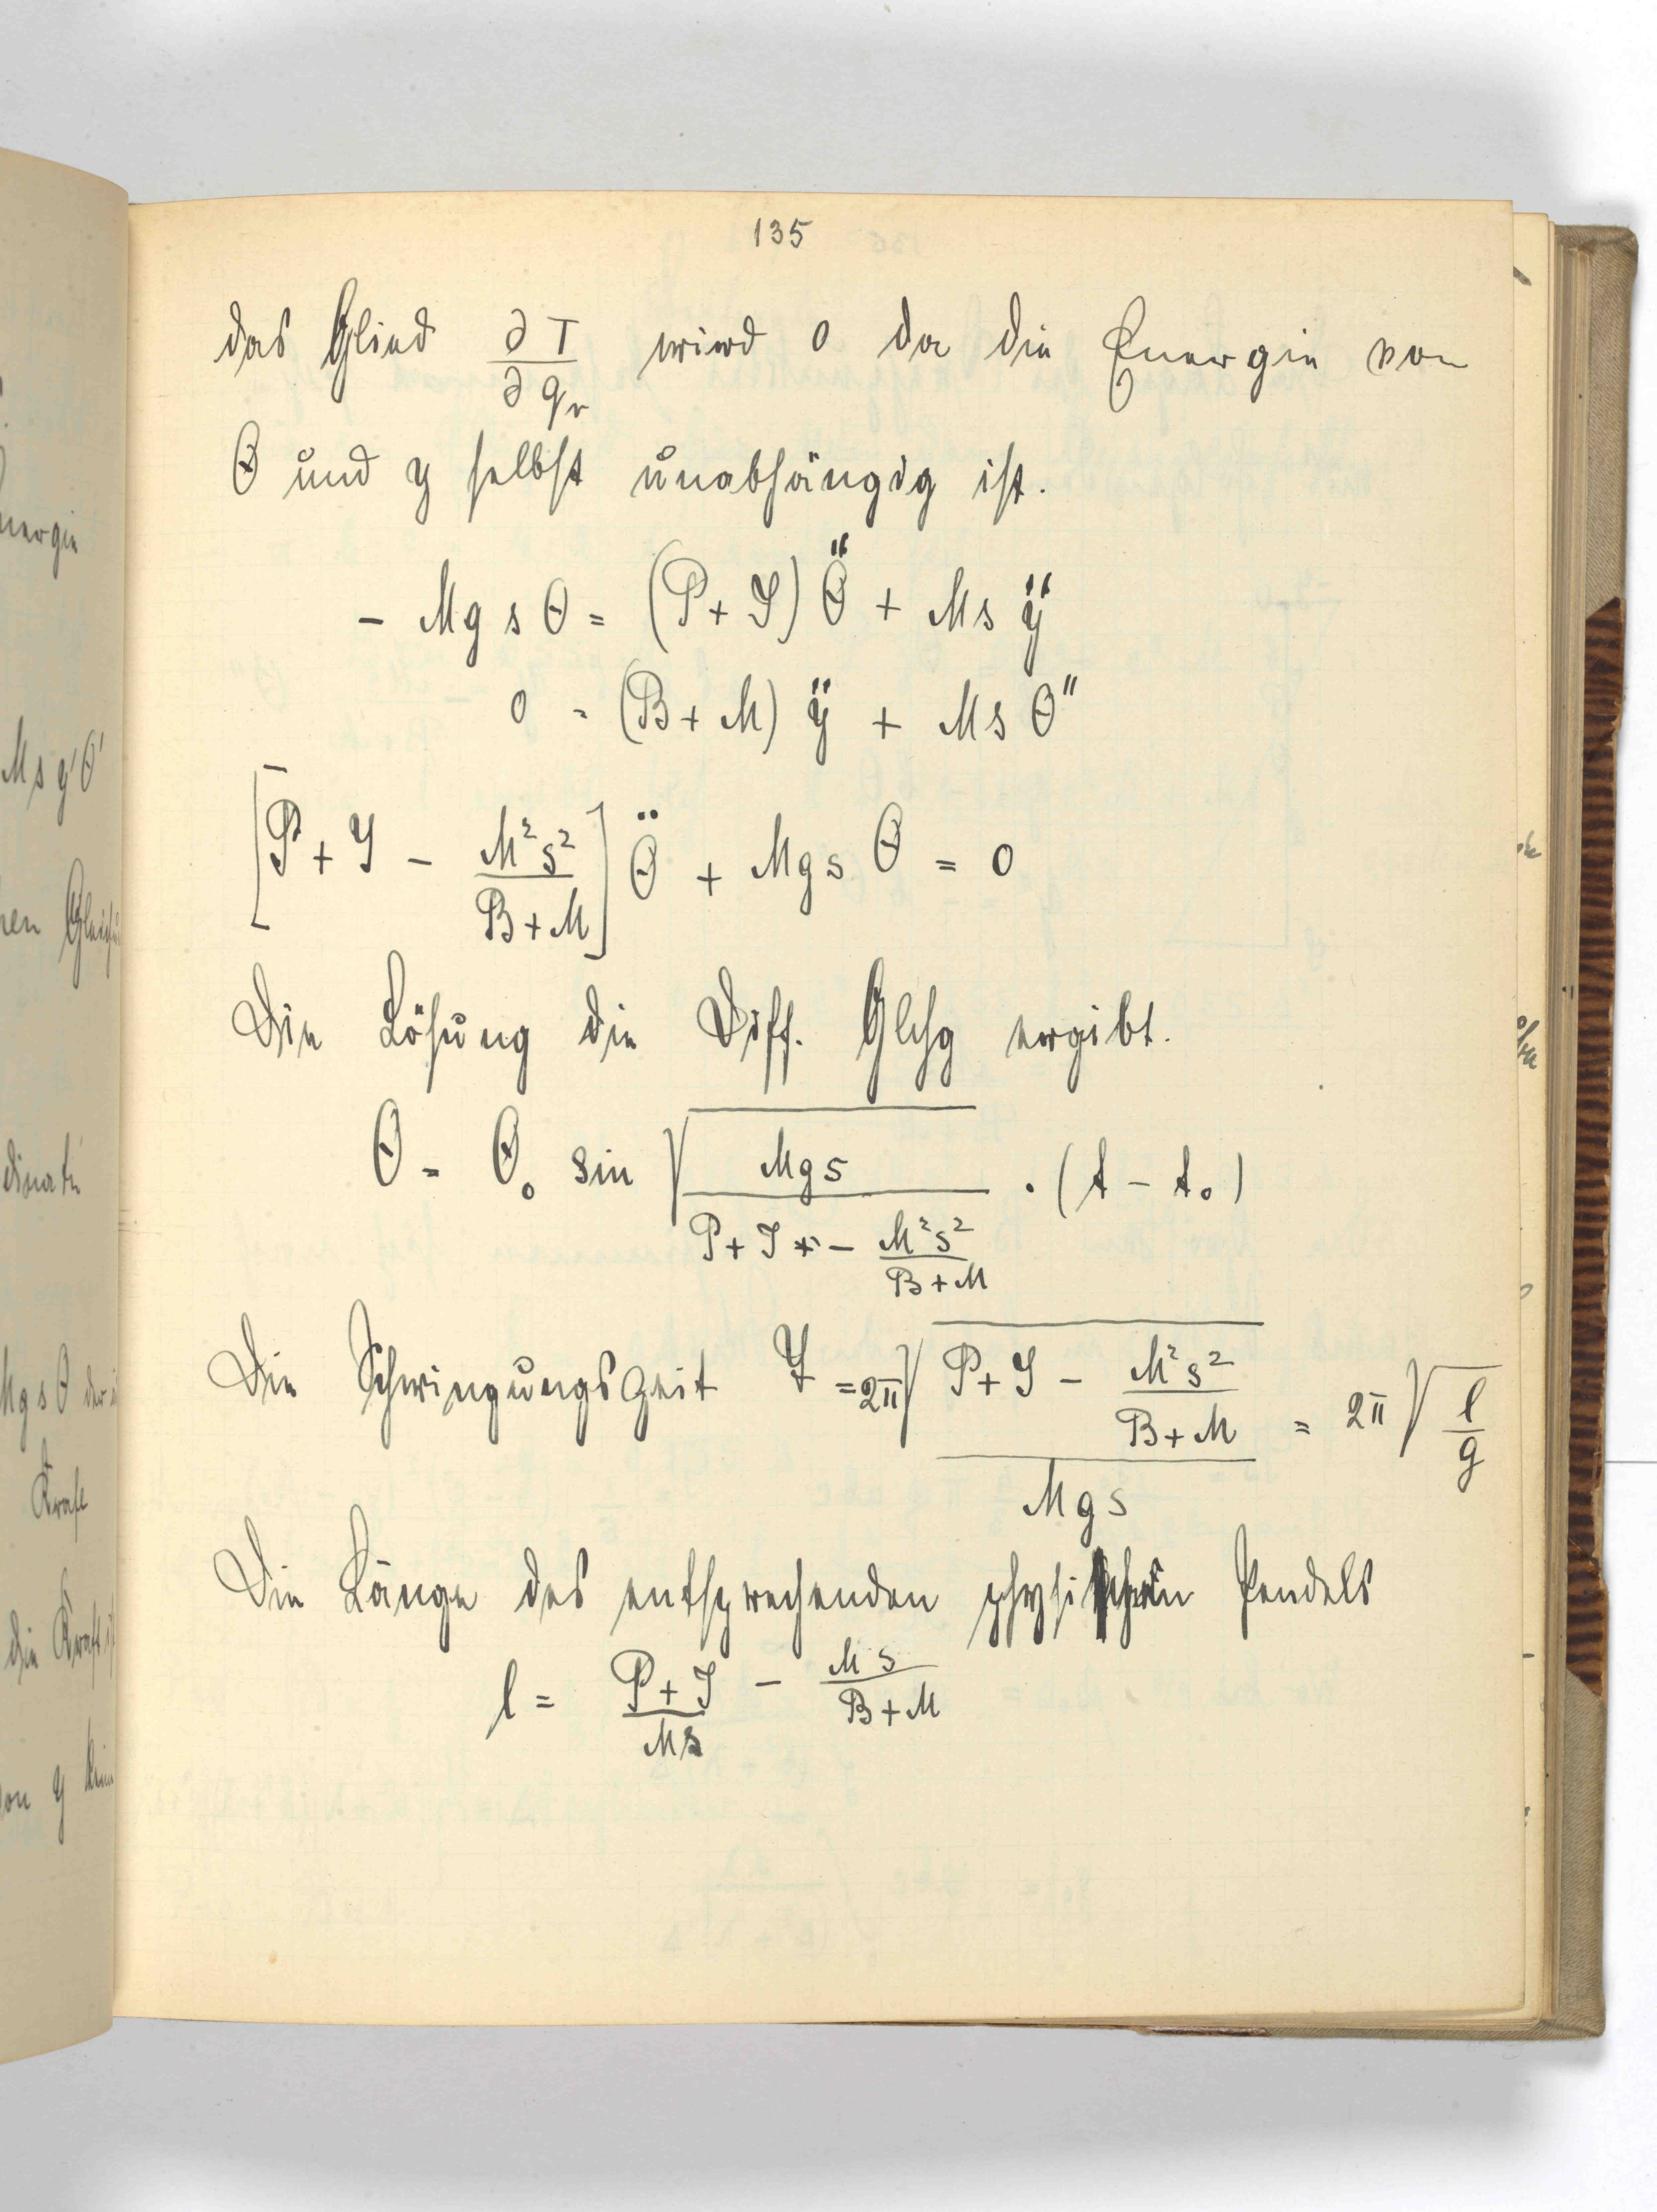 135
das Glied ∂T/∂qᵣ wird 0 da die Energie von
Θ und y selbst unabhängig ist.
- Mg s Θ = (P + J) Θ̈ + Ms ÿ
0 = (B + M) ÿ + Ms Θ"
[P + J - M²s²/(B+M)] Θ̈ + Mgs Θ = 0
Die Lösung die Diff. Glchg ergibt.
Θ = Θ₀ sin √(Mgs/(P + J - M²s²/(B+M))) · (t - t₀)
Die Schwingungszeit = 2π √((P + J - M²s²/(B+M))/Mgs) = 2π √(l/g)
Die Länge des entsprechenden physischen Pendels
l = (P + J)/Ms - Ms/(B+M)
nergie
Ms y'Θ'
dinate
Mgs Θ der
Kraft
die Kraft
von y